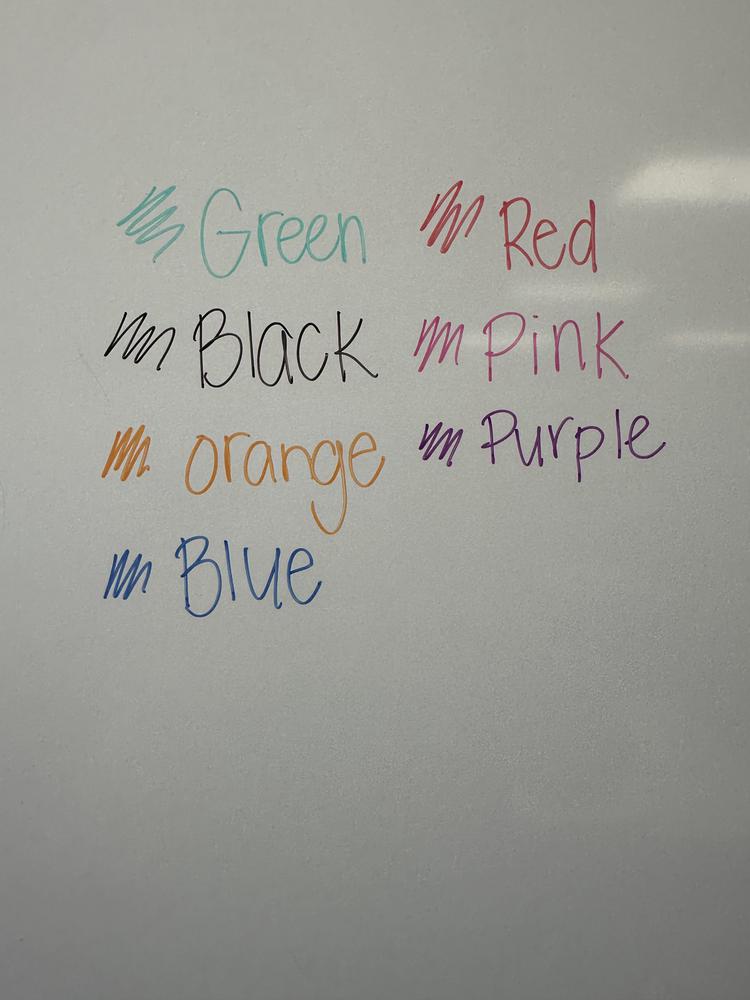 Green
Black
orange
Blue
Red
Pink
Purple